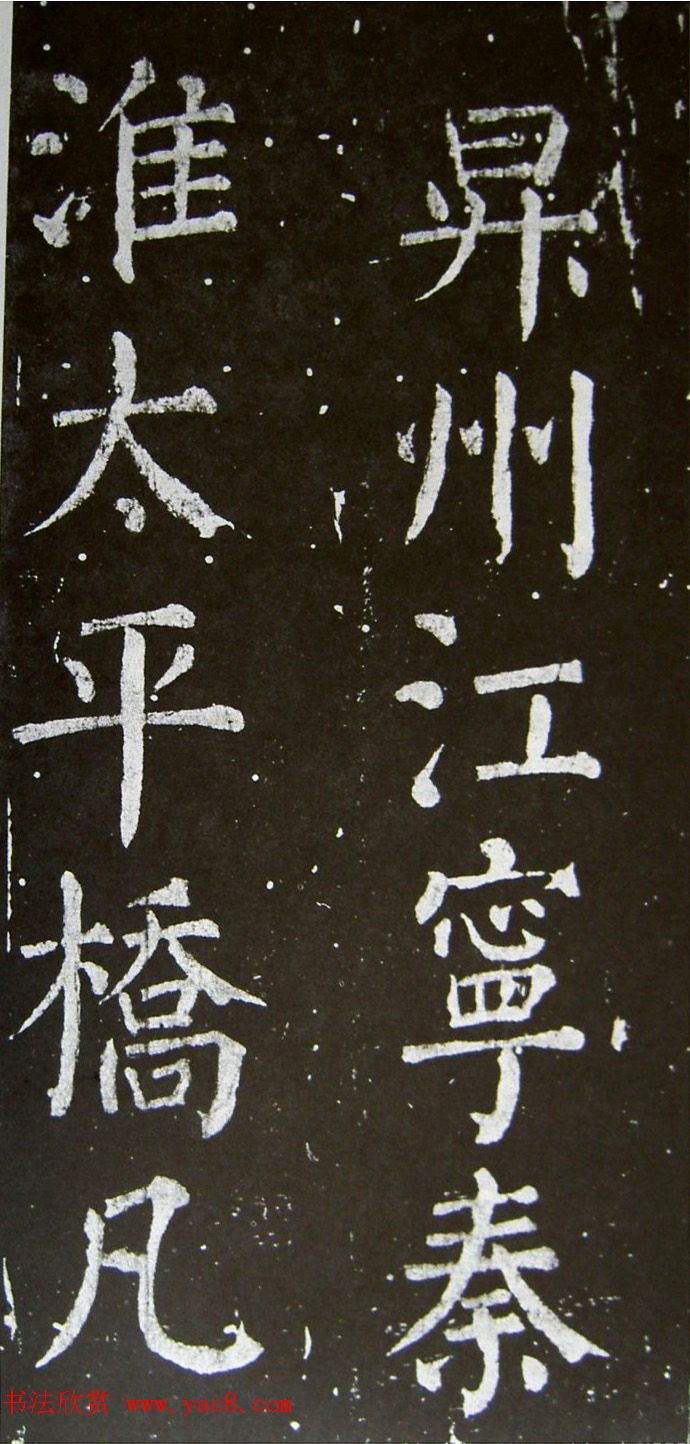 昇州江寧秦
淮太平橋凡
书法欣赏 www.yac8.com